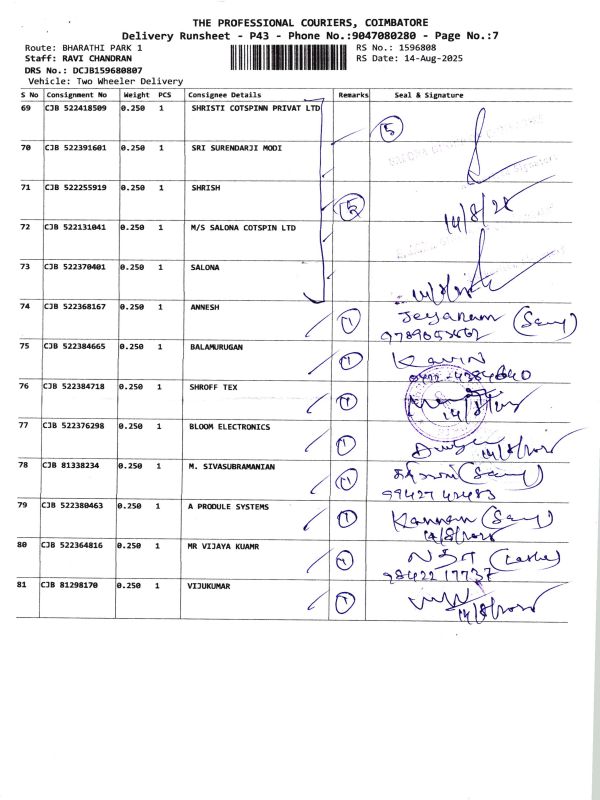 THE PROFESSIONAL COURIERS, COIMBATORE
Delivery Runsheet - P43 - Phone No.:9047080280 - Page No.:7
Route: BHARATHI PARK 1 RS No.: 1596808
Staff: RAVI CHANDRAN RS Date: 14-Aug-2025
DRS No.: DCJB159680807
Vehicle: Two Wheeler Delivery
S No Consignment No Weight PCS Consignee Details Remarks Seal & Signature
69 CJB 522418509 0.250 1 SHRISTI COTSPINN PRIVAT LTD
5
70 CJB 522391601 0.250 1 SRI SURENDARJI MODI
71 CJB 522255919 0.250 1 SHRISH
5
14/8/25
72 CJB 522131041 0.250 1 M/S SALONA COTSPIN LTD
73 CJB 522370401 0.250 1 SALONA
74 CJB 522368167 0.250 1 ANNESH 1 Jeyaram
75 CJB 522384665 0.250 1 BALAMURUGAN 1 Kavin
76 CJB 522384718 0.250 1 SHROFF TEX 1
77 CJB 522376298 0.250 1 BLOOM ELECTRONICS 1
14/8/2025
78 CJB 81338234 0.250 1 M. SIVASUBRAMANIAN 1
99427 42483
79 CJB 522380463 0.250 1 A PRODULE SYSTEMS 1 Kannan
14/8/2025
80 CJB 522364816 0.250 1 MR VIJAYA KUAMR 1
98422 17737
81 CJB 81298170 0.250 1 VIJUKUMAR 1
14/8/2025